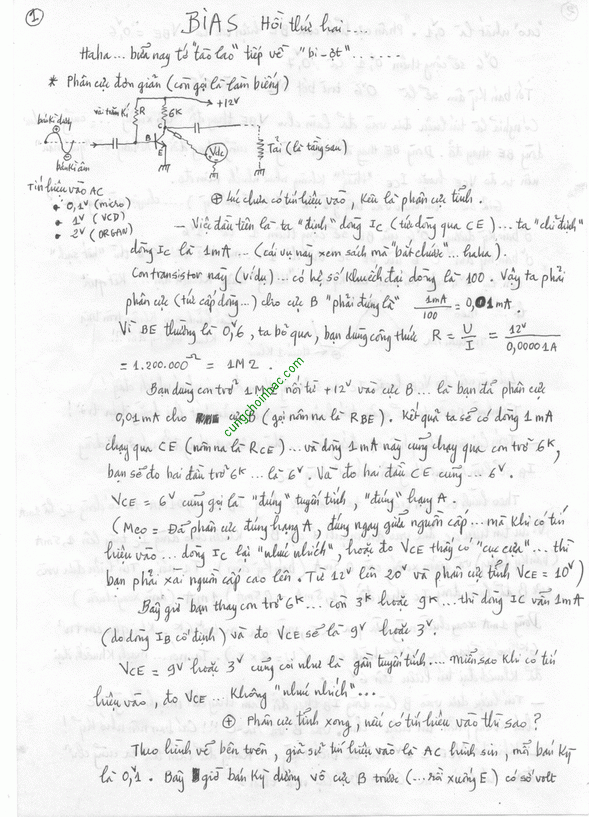 1
BIAS Hồi thứ hai....
Haha... bữa nay tớ "tào lao" tiếp về "bi-ột"......
* Phân cực đơn giản (còn gọi là làm biếng)
+12V
vài trăm K
R
6K
bán kì dương
bán kì âm
C
B
E
Vdc
Tải (là tầng sau)
Tín hiệu vào AC
0,1V (micro)
1V (VCD)
2V (ORGAN)
⊕ lúc chưa có tín hiệu vào, kêu là phân cực tĩnh.
- Việc đầu tiên là ta "định" dòng IC (tức dòng qua CE)... ta "chỉ định"
dòng IC là 1mA... (cái vụ này xem sách mà "bắt chước"... haha).
Con transistor này (ví dụ)... có hệ số khuếch đại dòng là 100. Vậy ta phải
phân cực (tức cấp dòng...) cho cực B "phải đúng là" 1mA/100 = 0,01mA.
Vì BE thường là 0V6, ta bỏ qua, bạn dùng công thức R = U/I = 12V/0,00001A
= 1.200.000Ω = 1M2.
Bạn dùng con trở 1M2 nối từ +12V vào cực B... là bạn đã phân cực
0,01mA cho cực B (gọi nôm na là RBE). Kết quả ta sẽ có dòng 1mA
chạy qua CE (nôm na là RCE)... và dòng 1mA này cũng chạy qua con trở 6K,
bạn sẽ đo hai đầu trở 6K... là 6V. Và đo hai đầu CE cũng... 6V.
VCE = 6V cũng gọi là "đúng" tuyến tính, "đúng" hạng A.
(Mẹo = Đã phân cực đúng hạng A, đúng ngay giữa nguồn cấp... mà khi có tín
hiệu vào... dòng IC lại "nhúc nhích", hoặc đo VCE thấy có "cục cựa"... thì
bạn phải xài nguồn cấp cao lên. Từ 12V lên 20V và phân cực tĩnh VCE = 10V)
Bây giờ bạn thay con trở 6K... còn 3K hoặc 9K... thì dòng IC vẫn 1mA
(do dòng IB cố định) và đo VCE sẽ là 9V hoặc 3V.
VCE = 9V hoặc 3V cũng coi như là gần tuyến tính.... miễn sao khi có tín
hiệu vào, đo VCE... không "nhúc nhích"...
⊕ Phân cực tĩnh xong, nếu có tín hiệu vào thì sao?
Theo hình vẽ bên trên, giả sử tín hiệu vào là AC hình sin, mỗi bán kỳ
là 0,1V. Bây giờ bán kỳ dương vô cực B trước (...rồi xuống E) có số volt
cungchoinhac.com